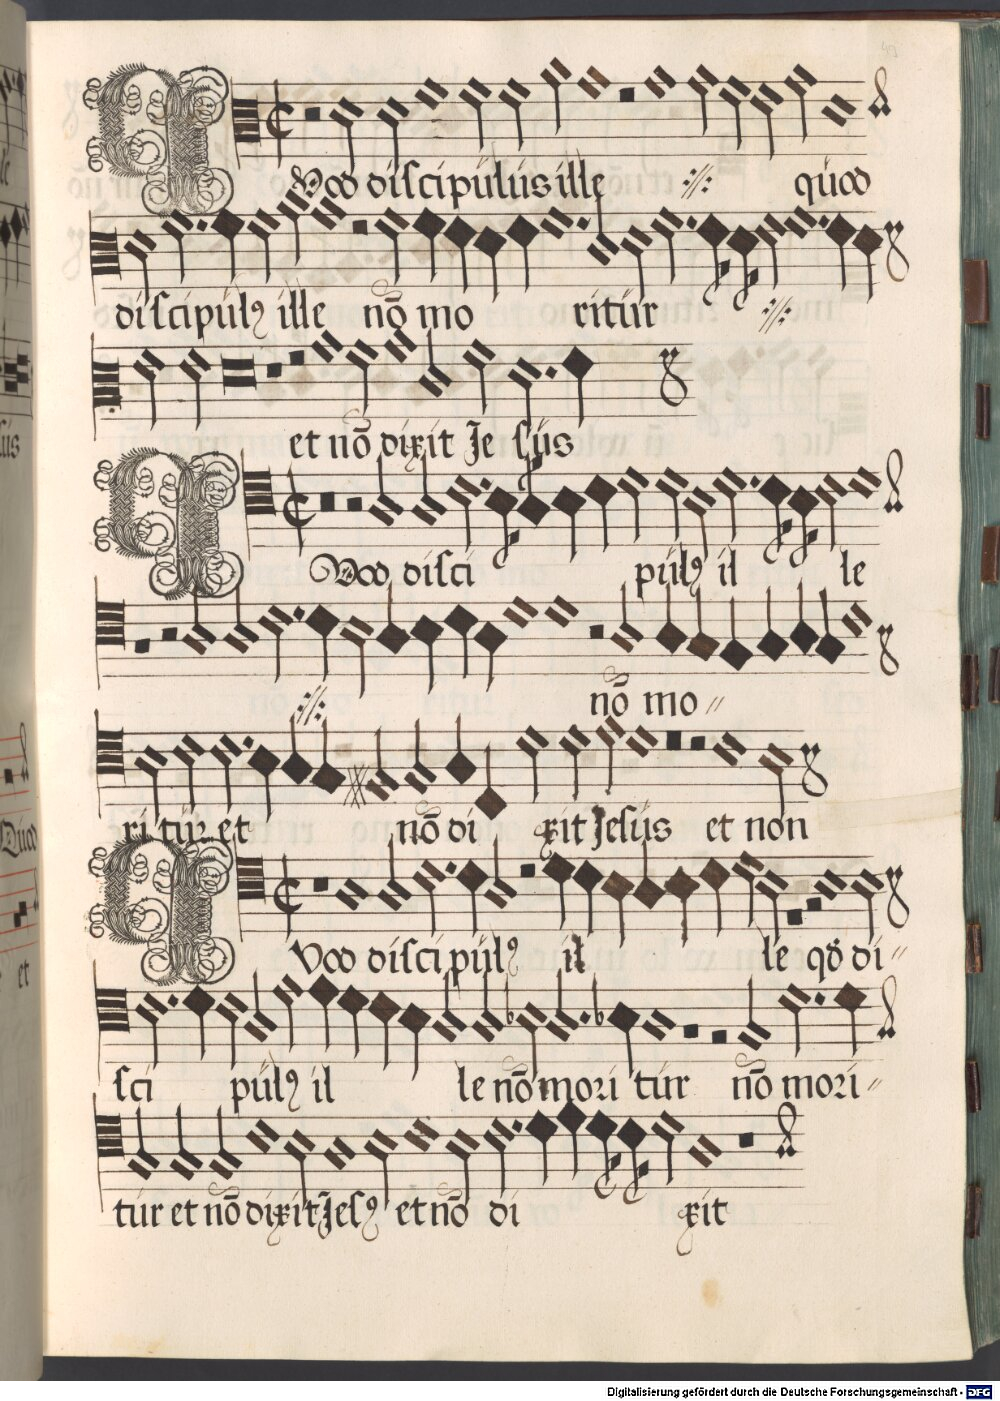 Quod discipulus ille ://: quod
discipulꝰ ille nō mo ritur ://:
et nō dixit Je sus
Quod disci pulꝰ il le
://: nō mo〃
ri tur et nō di xit Jesus et non
Quod discipulꝰ il le qđ di〃
sci pulꝰ il le nō mori tur nō mori〃
tur et nō dixit Jesꝰ et nō di xit
le
sus
Quod
et
Digitalisierung gefördert durch die Deutsche Forschungsgemeinschaft - DFG